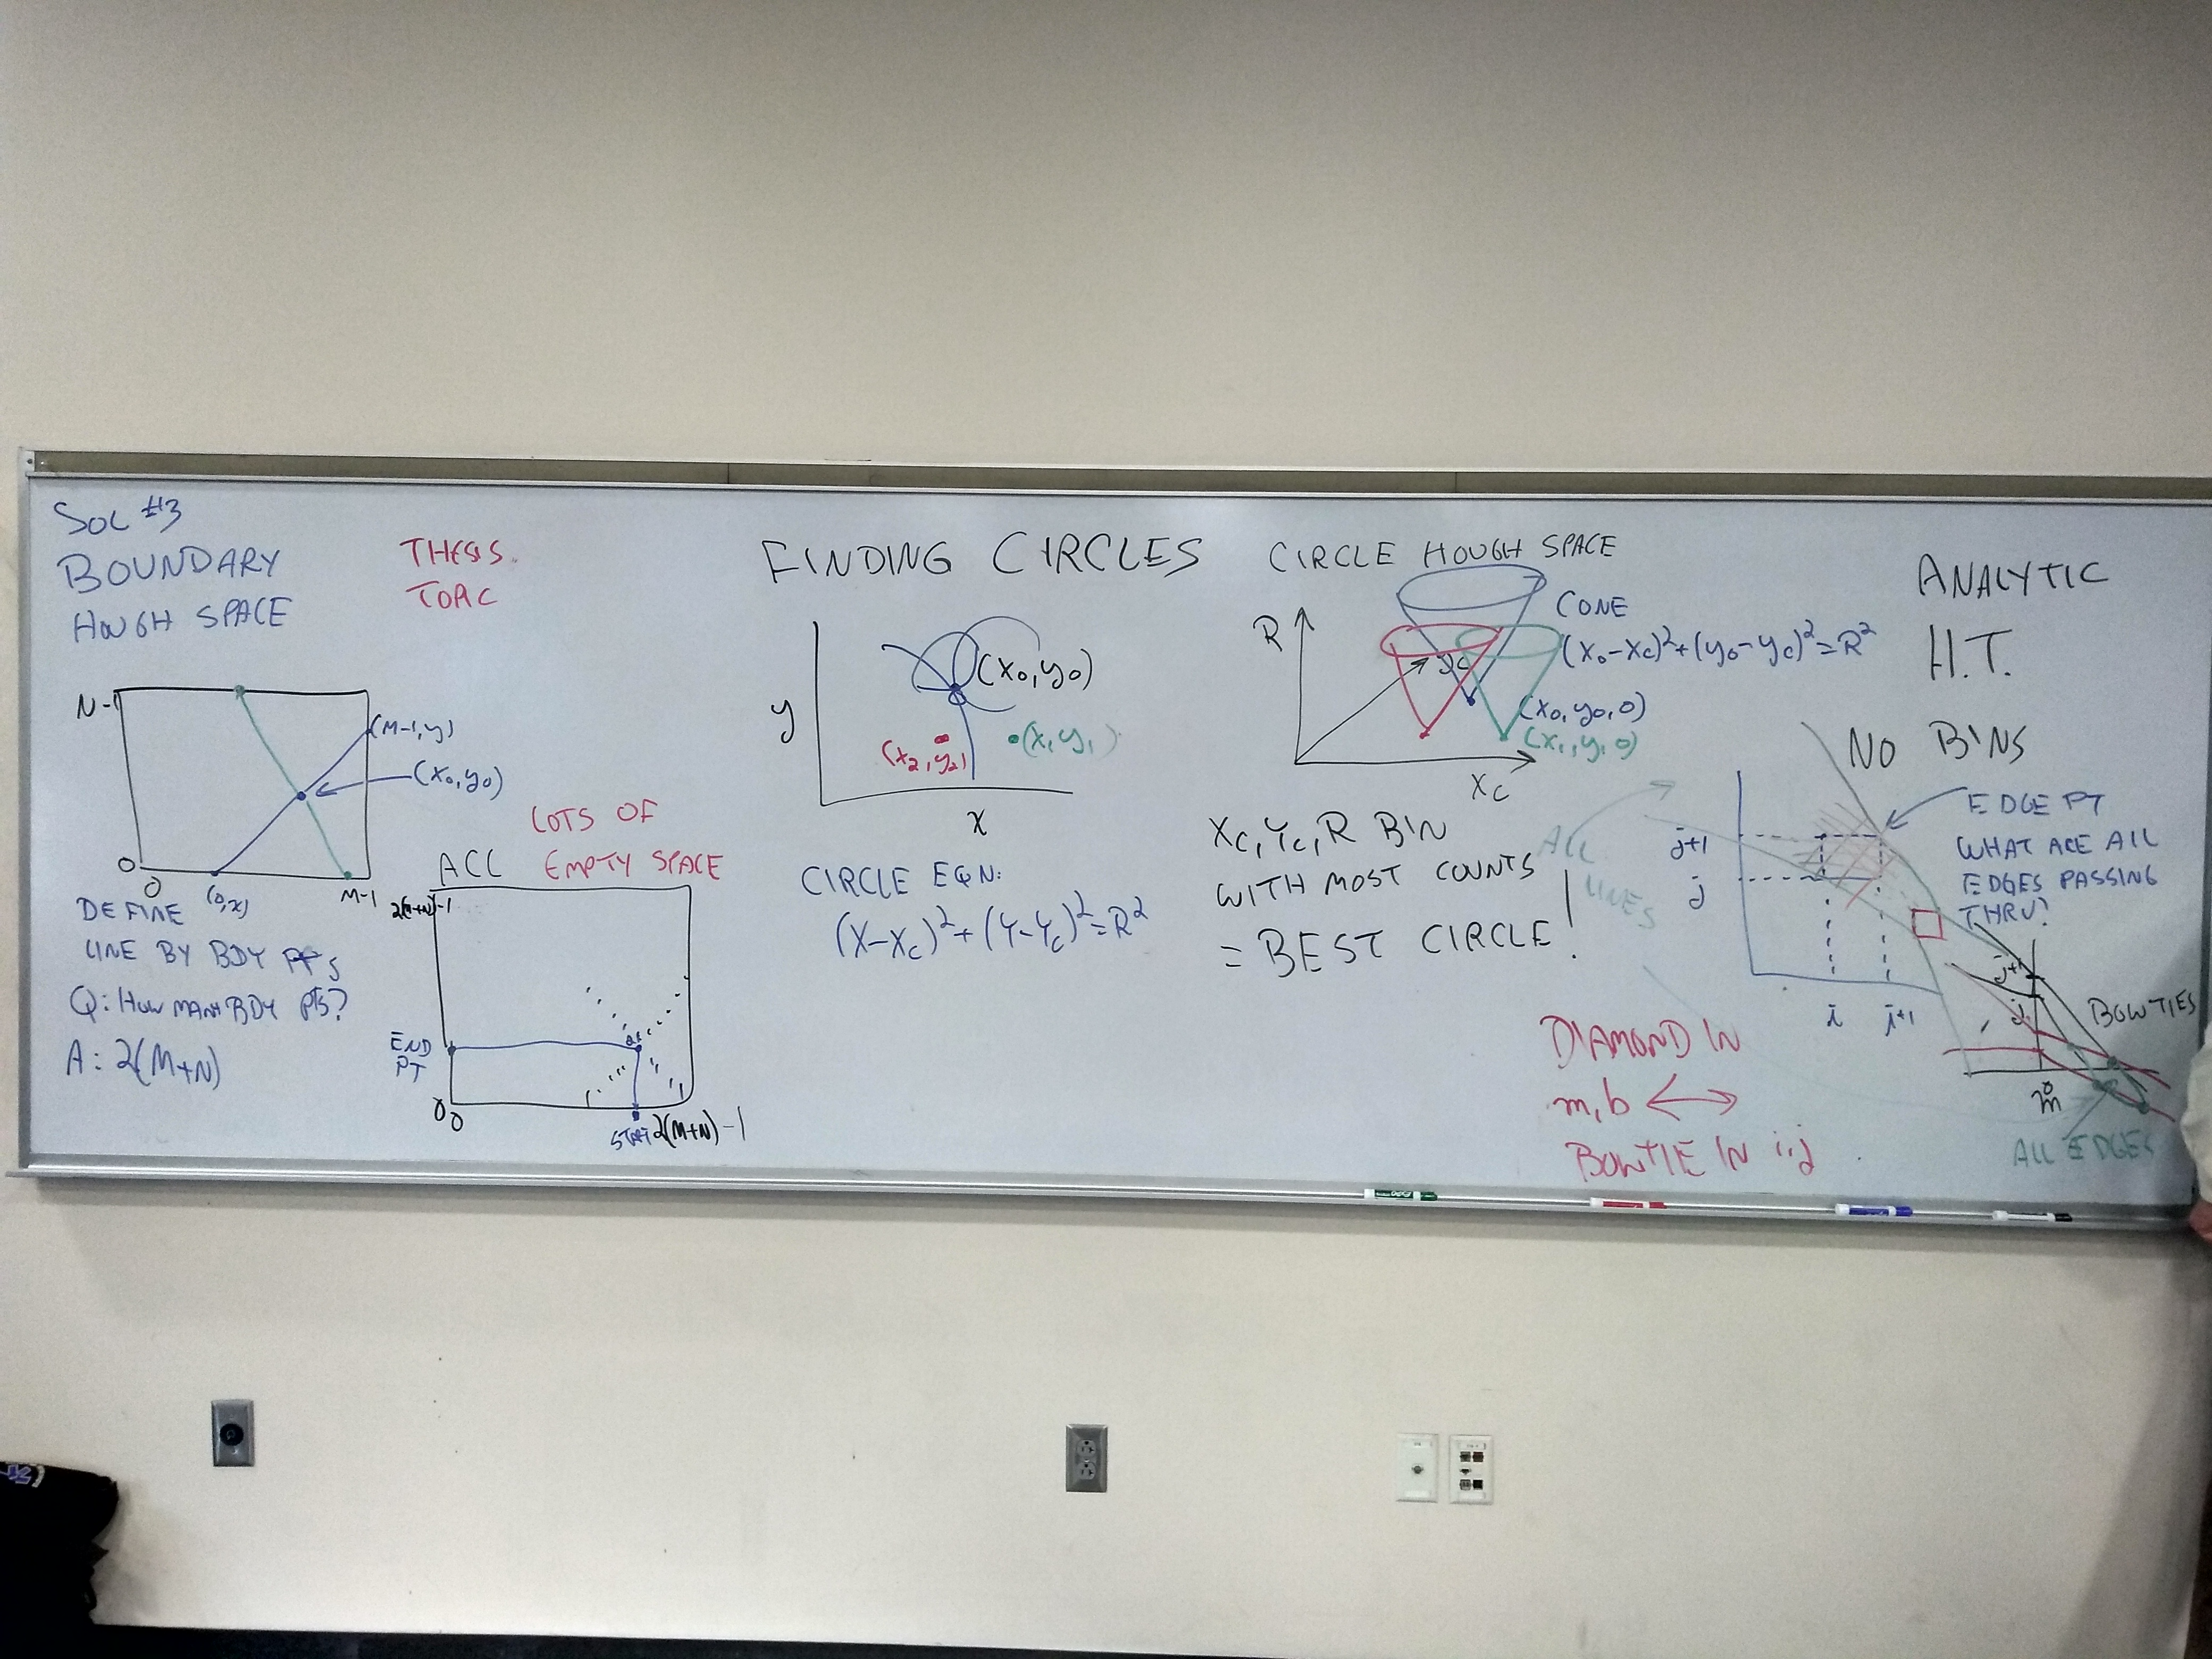 SOL #3
BOUNDARY
HOUGH SPACE
THESIS
TOPIC
N-1
(M-1,y)
(x₀,y₀)
0
0
(0,x)
M-1
DEFINE
LINE BY BDY PTS
Q: HOW MANY BDY PTS?
A: 2(M+N)
LOTS OF
EMPTY SPACE
ACC
2(M+N)-1
END
PT
0
0
START
2(M+N)-1
FINDING CIRCLES
y
(x₀,y₀)
(x₂,y₂)
(x₁,y₁)
x
CIRCLE EQN:
(X-Xc)²+(Y-Yc)²=R²
CIRCLE HOUGH SPACE
R
yc
CONE
(x₀-xc)²+(y₀-yc)²=R²
(x₀,y₀,0)
(x₁,y₁,0)
Xc
Xc,Yc,R BIN
WITH MOST COUNTS
= BEST CIRCLE!
ANALYTIC
H.T.
NO BINS
ALL
LINES
j+1
j
i
i+1
EDGE PT
WHAT ARE ALL
EDGES PASSING
THRU?
j+1
j
BOWTIES
m
ALL EDGES
DIAMOND IN
m,b ↔
BOWTIE IN i,j